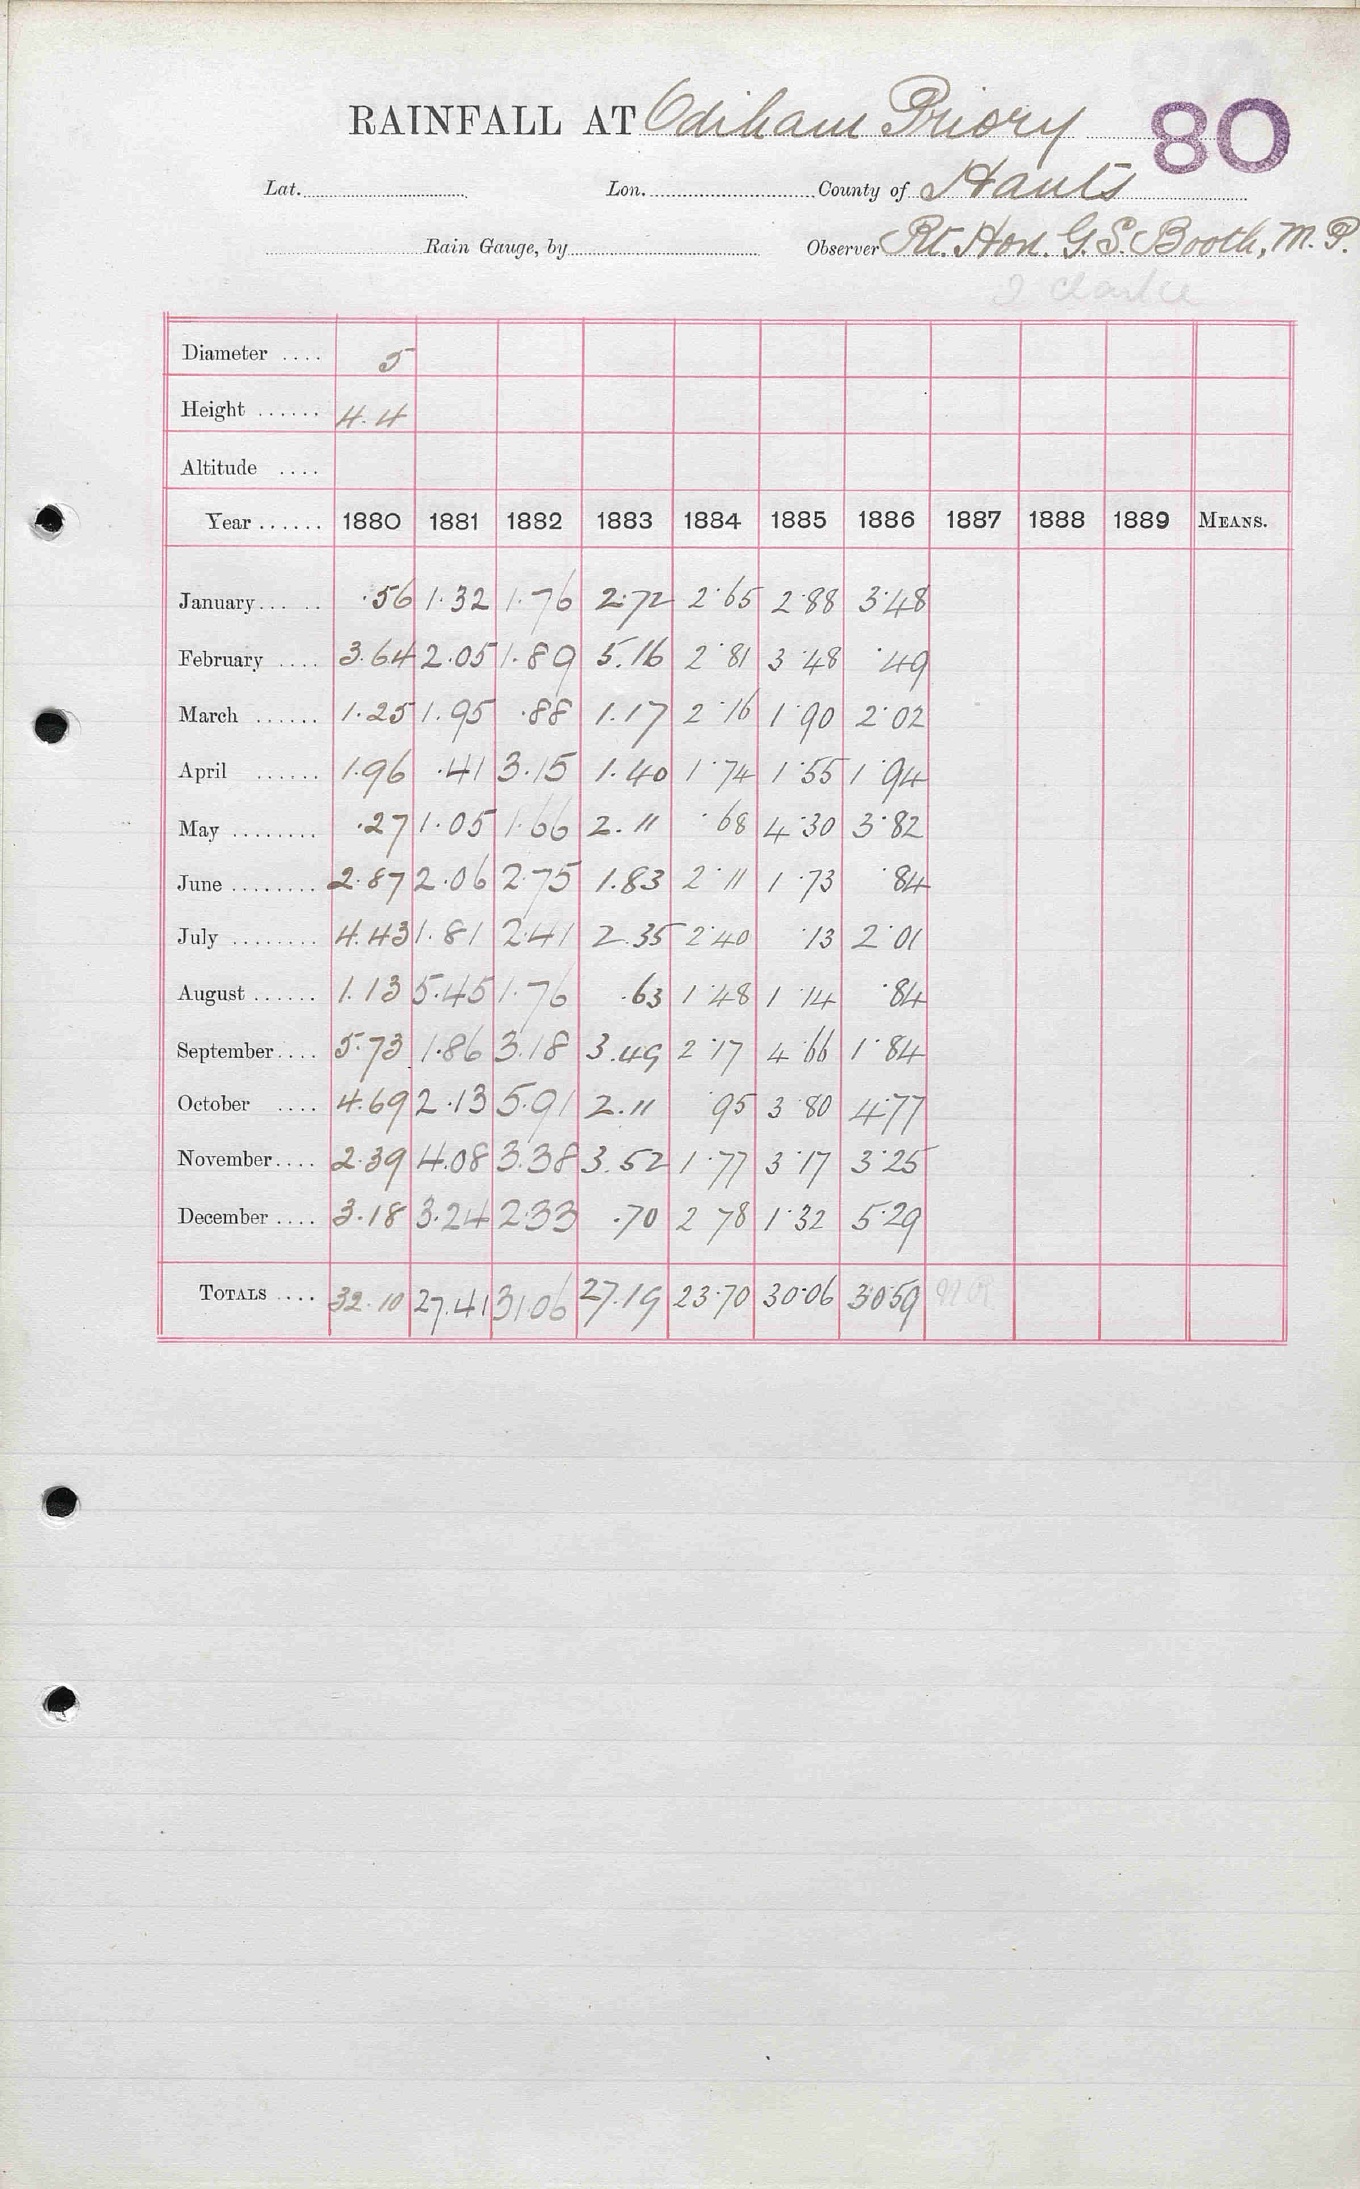 RAINFALL AT Odiham Priory 80
Lat. Lon. County of Hants
Rain Gauge, by Observer Rt. Hon. G. S. Booth, M. P.
Diameter .... 5
Height ...... 4.4
Altitude ....
Year ...... 1880 1881 1882 1883 1884 1885 1886 1887 1888 1889 MEANS.
January ..... .56 1.32 1.76 2.72 2.65 2.88 3.48
February .... 3.64 2.05 1.89 5.16 2.81 3.48 .49
March ...... 1.25 1.95 .88 1.17 2.16 1.90 2.02
April ...... 1.96 .41 3.15 1.40 1.74 1.55 1.94
May ........ .27 1.05 1.66 2.11 .68 4.30 3.82
June ........ 2.87 2.06 2.75 1.83 2.11 1.73 .84
July ........ 4.43 1.81 2.41 2.35 2.40 .13 2.01
August ...... 1.13 5.45 1.76 .63 1.48 1.14 .84
September .... 5.73 1.86 3.18 3.49 2.17 4.66 1.84
October .... 4.69 2.13 5.91 2.11 .95 3.80 4.77
November .... 2.39 4.08 3.38 3.52 1.77 3.17 3.25
December .... 3.18 3.24 2.33 .70 2 78 1.32 5.29
TOTALS .... 32.10 27.41 31.06 27.19 23.70 30.06 30.59